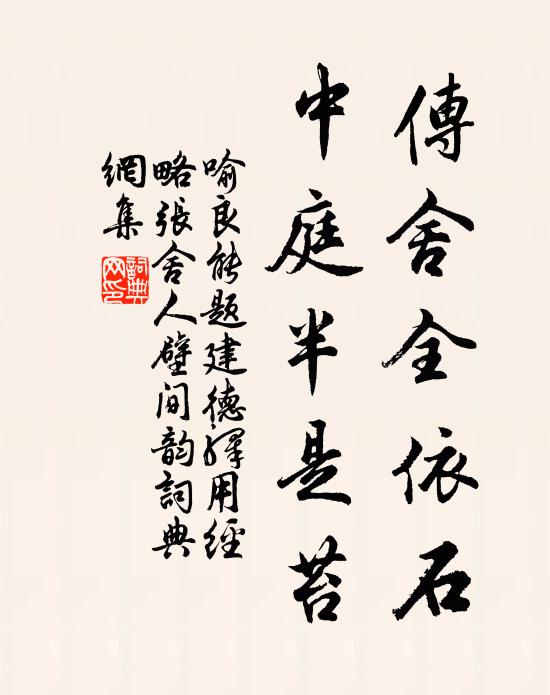 傳舍全依石
中庭半是苔
喻良能題建德驛用經
略張舍人壁間韵詞典
網集
詞典
网印